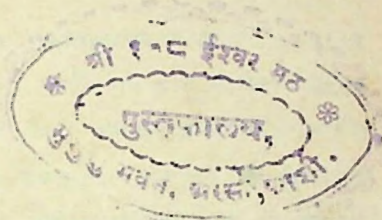 श्री १०८ ईश्वर मठ
पुस्तकालय,
भवन, अस्सी, काशी.